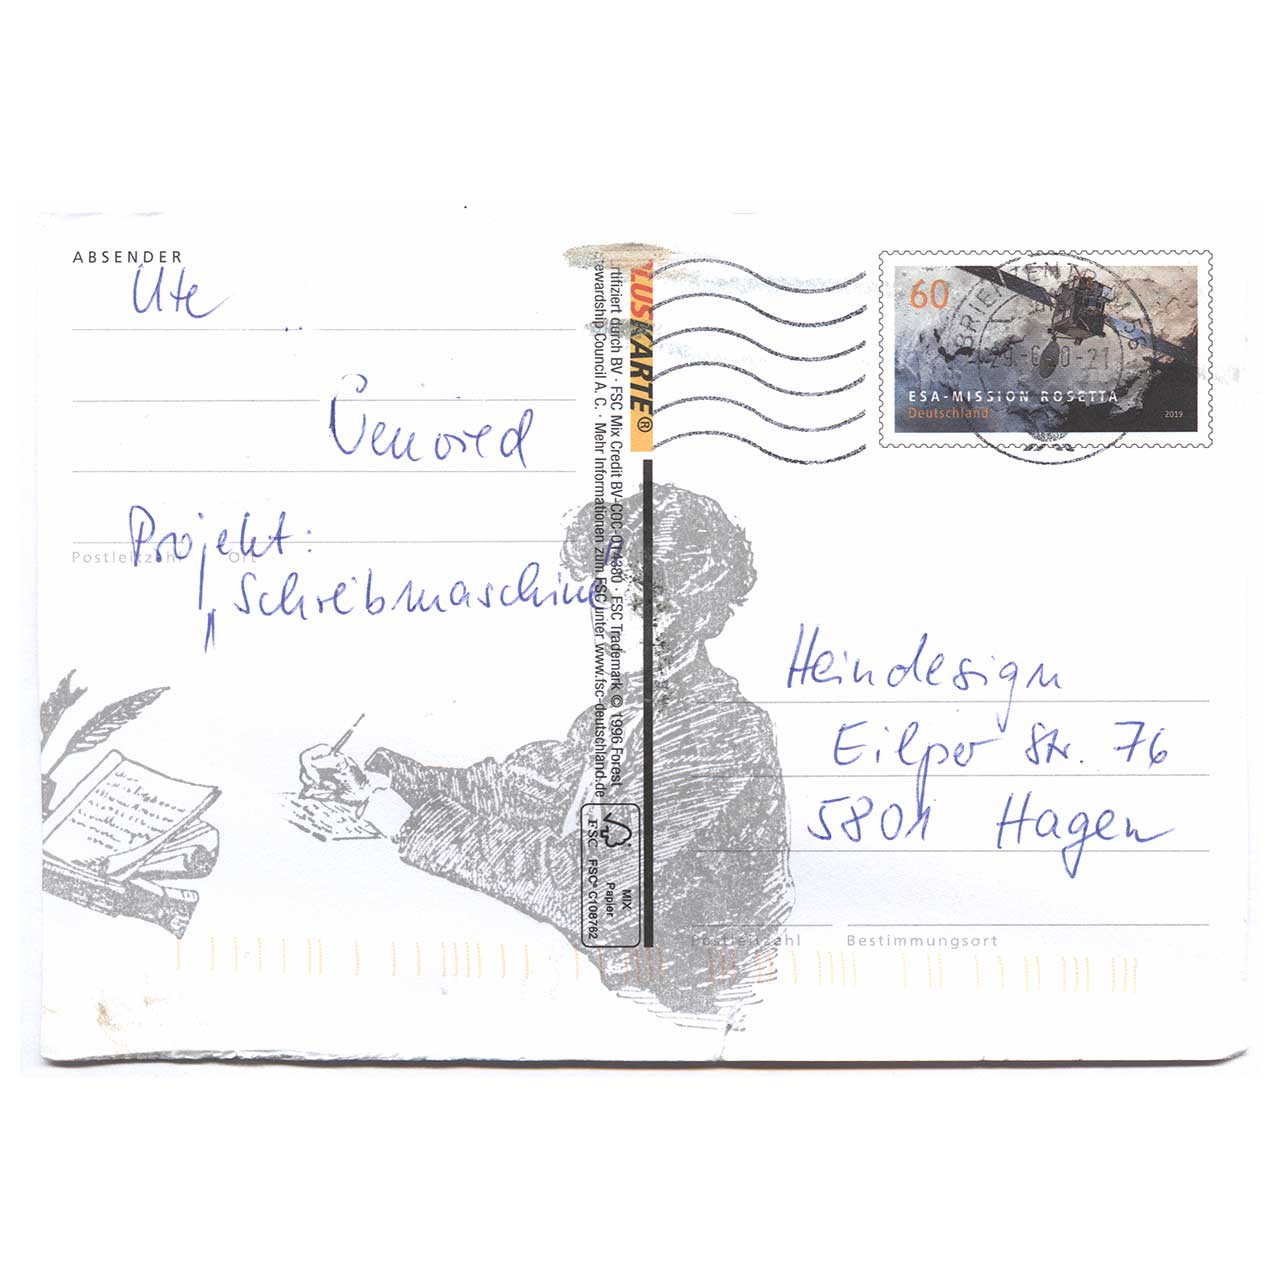 ABSENDER
Ute
Projekt:
„Schreibmaschine"
Postleitzahl Ort
LUSKARTE®
rtifiziert durch BV · FSC Mix Credit BV-COC-014380 · FSC Trademark © 1996 Forest
ewardship Council A.C. · Mehr Informationen zum FSC unter www.fsc-deutschland.de
FSC
MIX
Papier
FSC® C108762
60
ESA-MISSION ROSETTA
Deutschland
2019
BRIEFZENTRUM 58
Heindesign
Eilper Str. 76
5801 Hagen
Postleitzahl Bestimmungsort